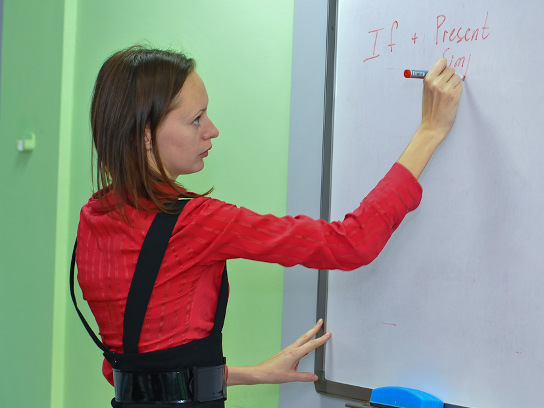 If + Present
Simp